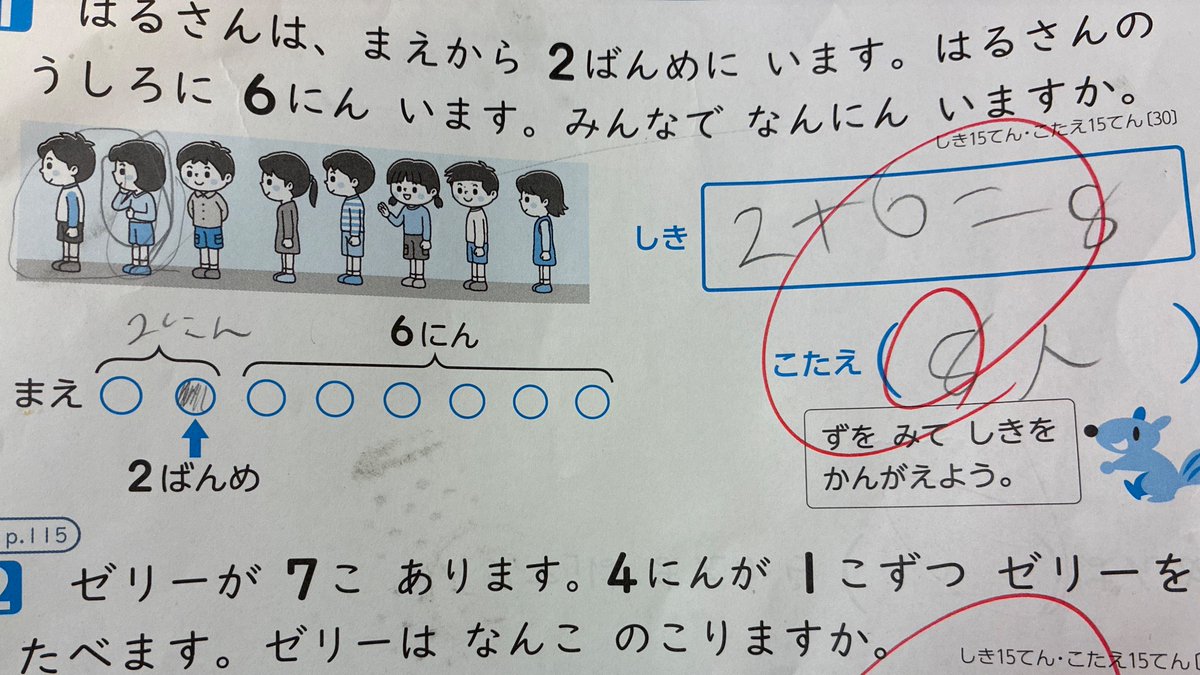 1 はるさんは、まえから 2ばんめに います。はるさんの
うしろに 6にん います。みんなで なんにん いますか。
しき15てん・こたえ15てん[30]
しき 2+6=8
2にん 6にん
まえ
2ばんめ
こたえ (8人)
ずを みて しきを
かんがえよう。
p.115
2 ゼリーが 7こ あります。4にんが 1こずつ ゼリーを
たべます。ゼリーは なんこ のこりますか。
しき15てん・こたえ15てん[